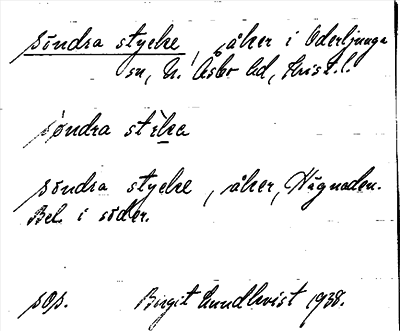 söndra stycke, åker i Oderljunga
sn, N. Åsbo hd, Krist. l.
söndra stика
söndra stycke, åker, Hägnaden.
Bel. i söder.
sop. Birgit Lundkvist 1938.